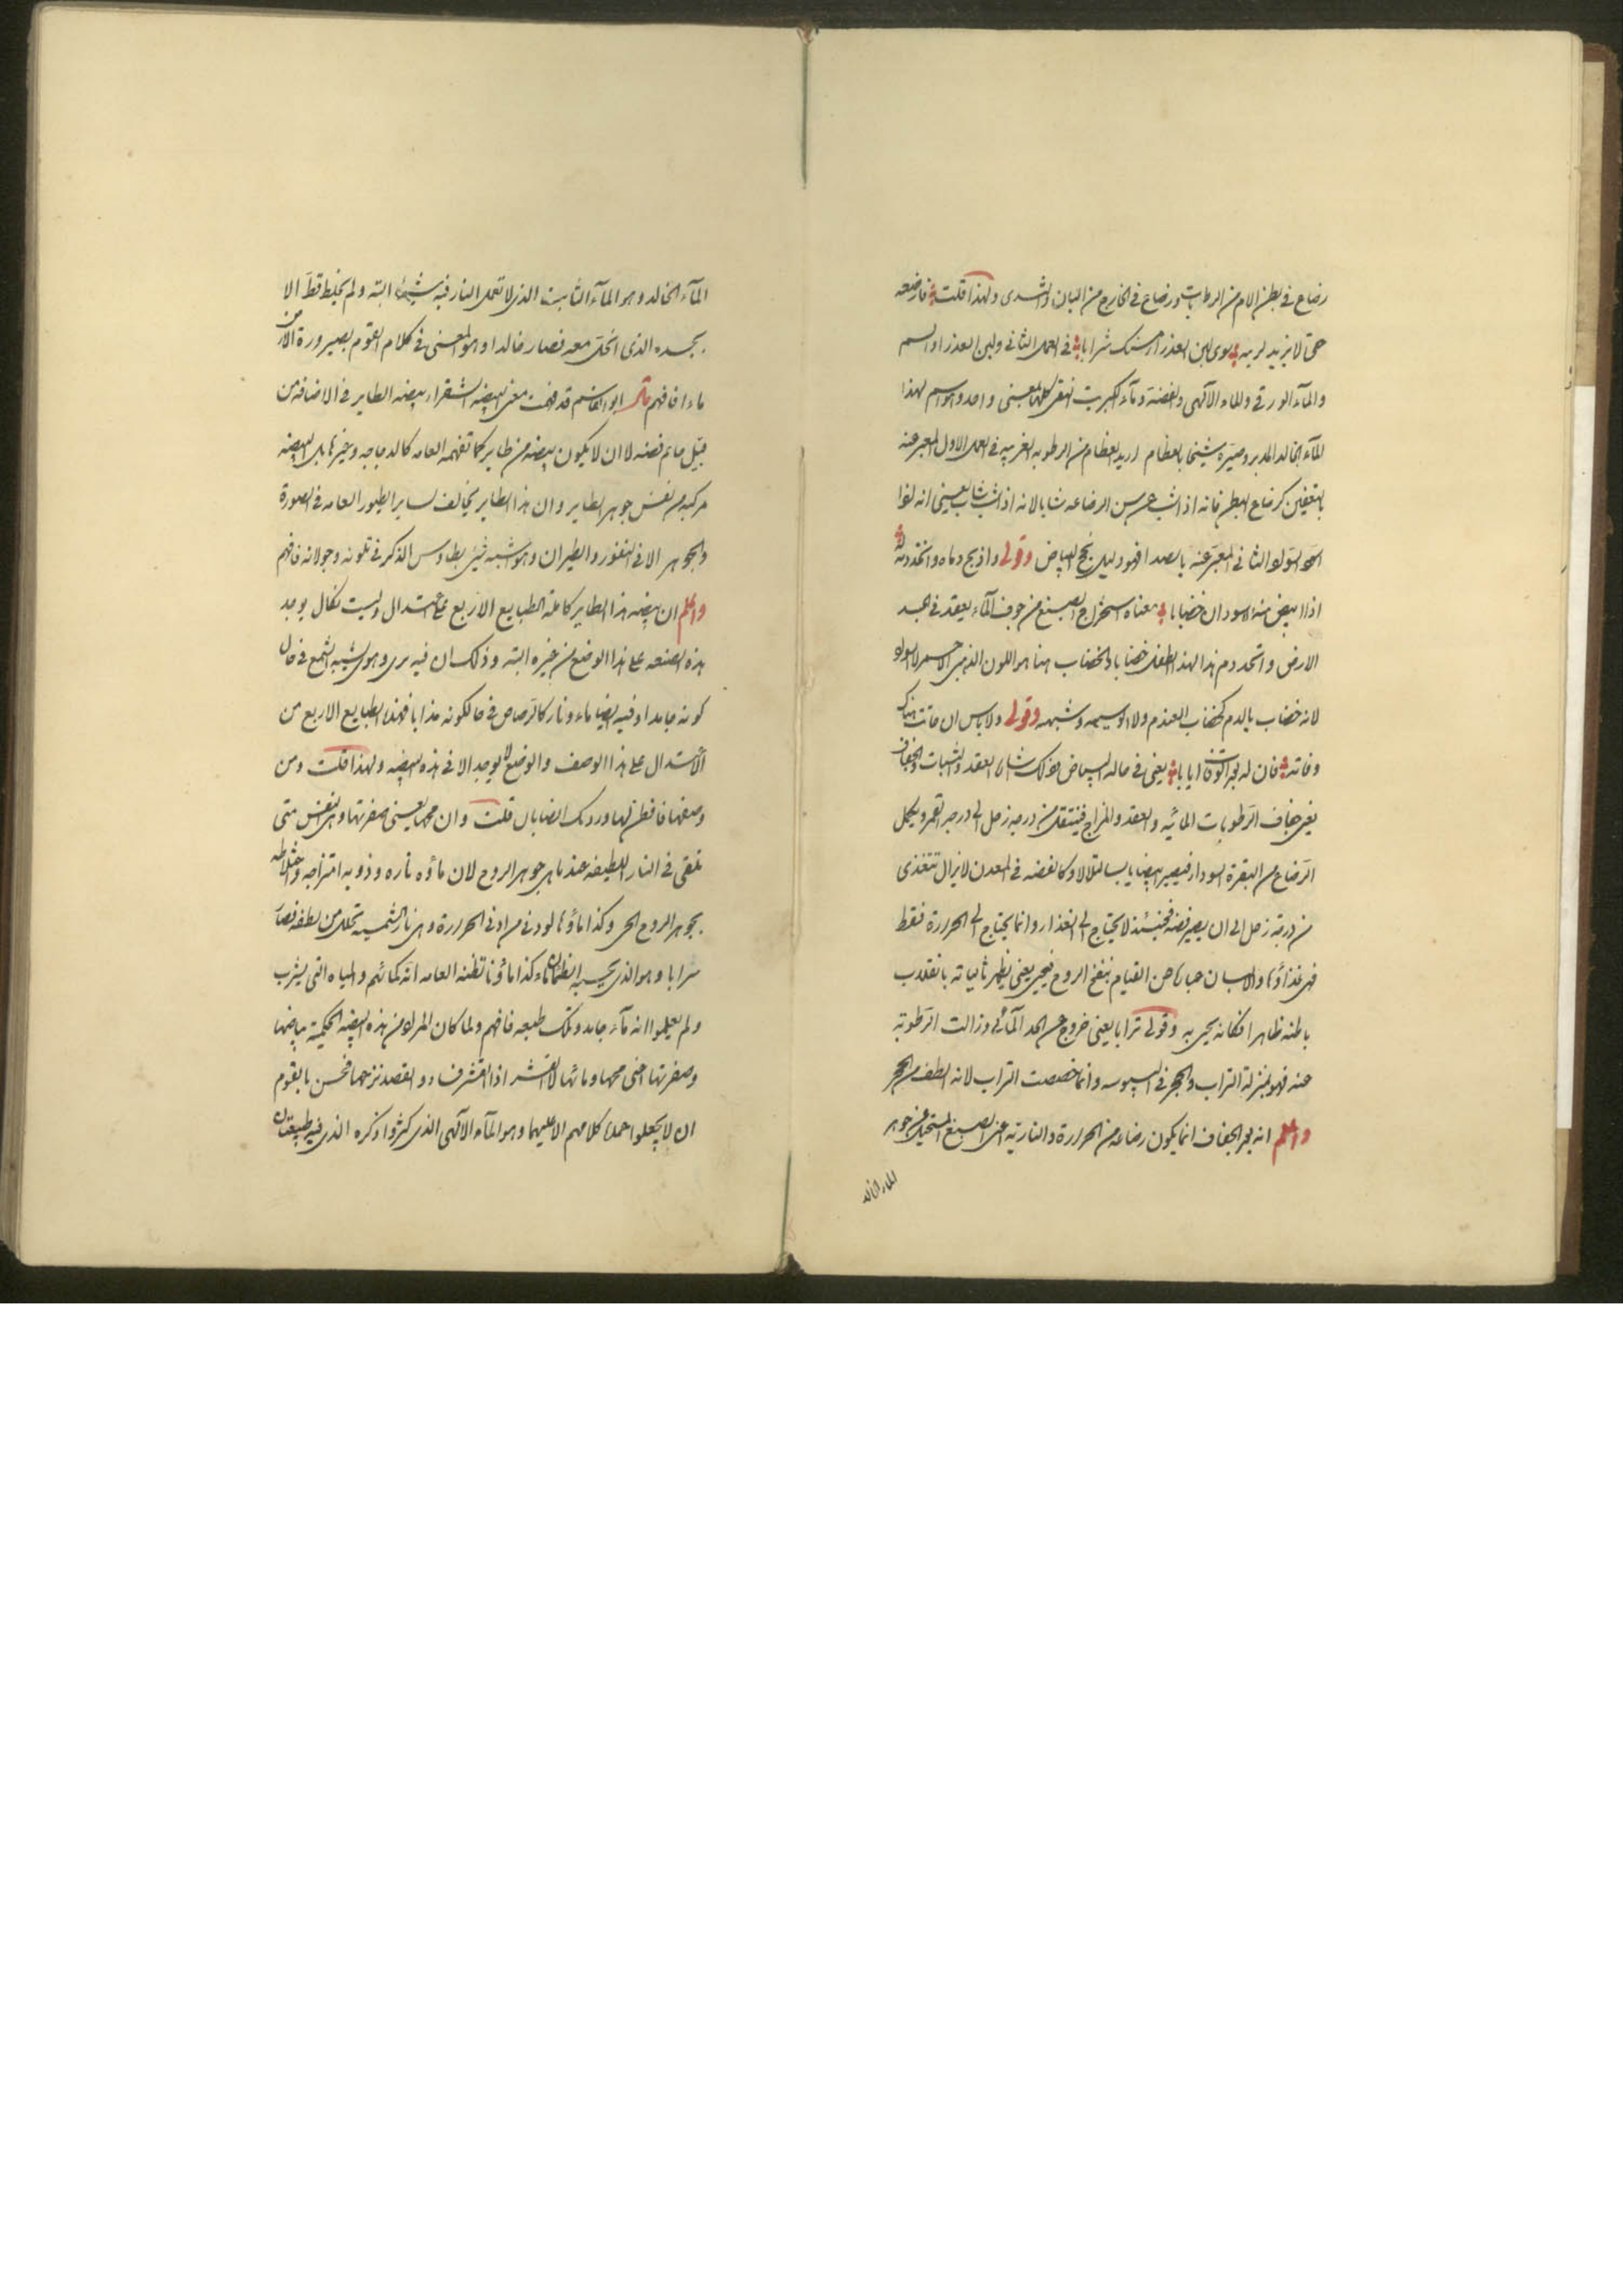 رضاع في بطن الام من الرطوبات ورضاع في الخارج من البان الثدى ولهذا قلت فارضعه
حتى لا يزيد لربيه سوى لبن العذراء منك شرابا في العمل الثاني ولبن العذراء اسم
والماء الورقي والماء الالهى والفضة وماء الكبريت النقى كلها بمعنى واحد وهو اسم لهذا
الماء الخالد المدبر وصيره شيخا بالفطام اريد الفطام من الرطوبه الغريبه في العمل الاول المعبر عنه
بالتعفين كرضاع البطن فانه اذا شب عن سن الرضاعه شابا لانه اذا شب شاب يعنى انه
هو السواد الثاني المعبر عنه بالصدا فهو دليل نجح البياض وقولى واذبح دماه واتخذ دمه
اذا ابيض منه السودان خضابا معناه استخراج الصبغ من جوف الماء يعقد في جسد
الارض واتخذ دم هذا لهذا الطفل خضابا والخضاب هنا هو اللون الذهبى الاحمر لا سواد
لانه خضاب بالدم كخضاب العندم ولا الوسيمه وشبهه وقولى ولا باس ان ماتت هناك
وفاته فان له بعد الوفاة ايابا يعنى في حالة البياض فذلك شان العقد والثبات والجفاف
يعنى جفاف الرطوبات المائيه والعقد والمزاج فينتقل من درجه زحل الى درجه القمر ويكمل
الرضاع من البقرة السوداء فيصير ابيضا يابسا متلالاء وكالفضه في المعدن لا يزال تتغذى
من درجة زحل الى ان يصير فضه فحينئذ لا يحتاج الى الغذاء وانما يحتاج الى الحرارة فقط
فهى غذاؤها والابان حان حين القيام بنفخ الروح فيحيى يعنى يظهر ثانيا ته بانقلاب
باطنه ظاهرا فكانه يحيى به وقولى ترابا يعنى خروج عن الحد المائى وزالت الرطوبة
عنه فهو بمنزلة التراب والحجر في اليبوسه وانما خصصت التراب لانه الطف من الحجر
واعلم انه بعد الجفاف انما يكون رضاعه من الحرارة والناريه اعنى الصبغ المستحيل عن جوهر
الماء الخالد
الماء الخالد وهو الماء الثابت الذى لا تعمل النار فيه شيئا البته ولم يختلط قط الا
بجسده الذى انحل معه فصار خالدا وهو المعنى في كلام القوم بصيرورة الارض
ماءا فافهم قال ابو القاسم قد فهمت معنى البيضه الشقراء بيضه الطاير في الاضافه من
قبيل خاتم فضه لا ان لا يكون بيضه من طاير كما تفهمه العامه كالدجاجه وغيرها بل البيضه
مركبه من نفس جوهر الطاير وان هذا الطاير يخالف لساير الطيور العامه في الصورة
والجوهر الا في النفور والطيران وهو اشبه شئ بطاوس الذكر في تلونه وجولانه فافهم
واعلم ان بيضه هذا الطاير كاملة الطبايع الاربع على اعتدال وليست تكال يوجد
هذه الصنعه على هذا الوضع من غيره البته وذلك ان فيه برى وهو يشبه الشمع في حال
كونه جامدا وفيه ايضا ماء ونار كالرصاص في حال كونه مذابا فهذه الطبايع الاربع من
الاعتدال على هذا الوصف والوضع لا يوجد الا في هذه البيضه ولهذا قلت ومن
وصفها فافطن لها ورد بك انضابان قلت وان محها يعنى صفرتها وهى النفس متى
تلقى في النار اللطيفه عندنا هى جوهر الروح لان ماؤه ناره وذوبه امتزاجه واختلاطه
بجوهر الروح الحى وكذا ماؤها لو دنى من ادنى الحرارة وهى نار الشمسيه تحلل من لطفه فصار
سرابا وهو الذى يحسبه الظمان ماء كذا ماؤنا تظنه العامه انه كمائهم والمياه التى يشرب
ولم يعلموا انه ماء جامد وتلك طبعه فافهم ولما كان المراد من هذه البيضه الحكمية بياضها
وصفرتها اعنى محها ومائها لا القشر اذ القشر فاد والقصد نزحها فحسن بالقوم
ان لا يجعلوا عمدة كلامهم الا عليهما وهو الماء الالهى الذى كثروا ذكره الذى فيه طبيعتان